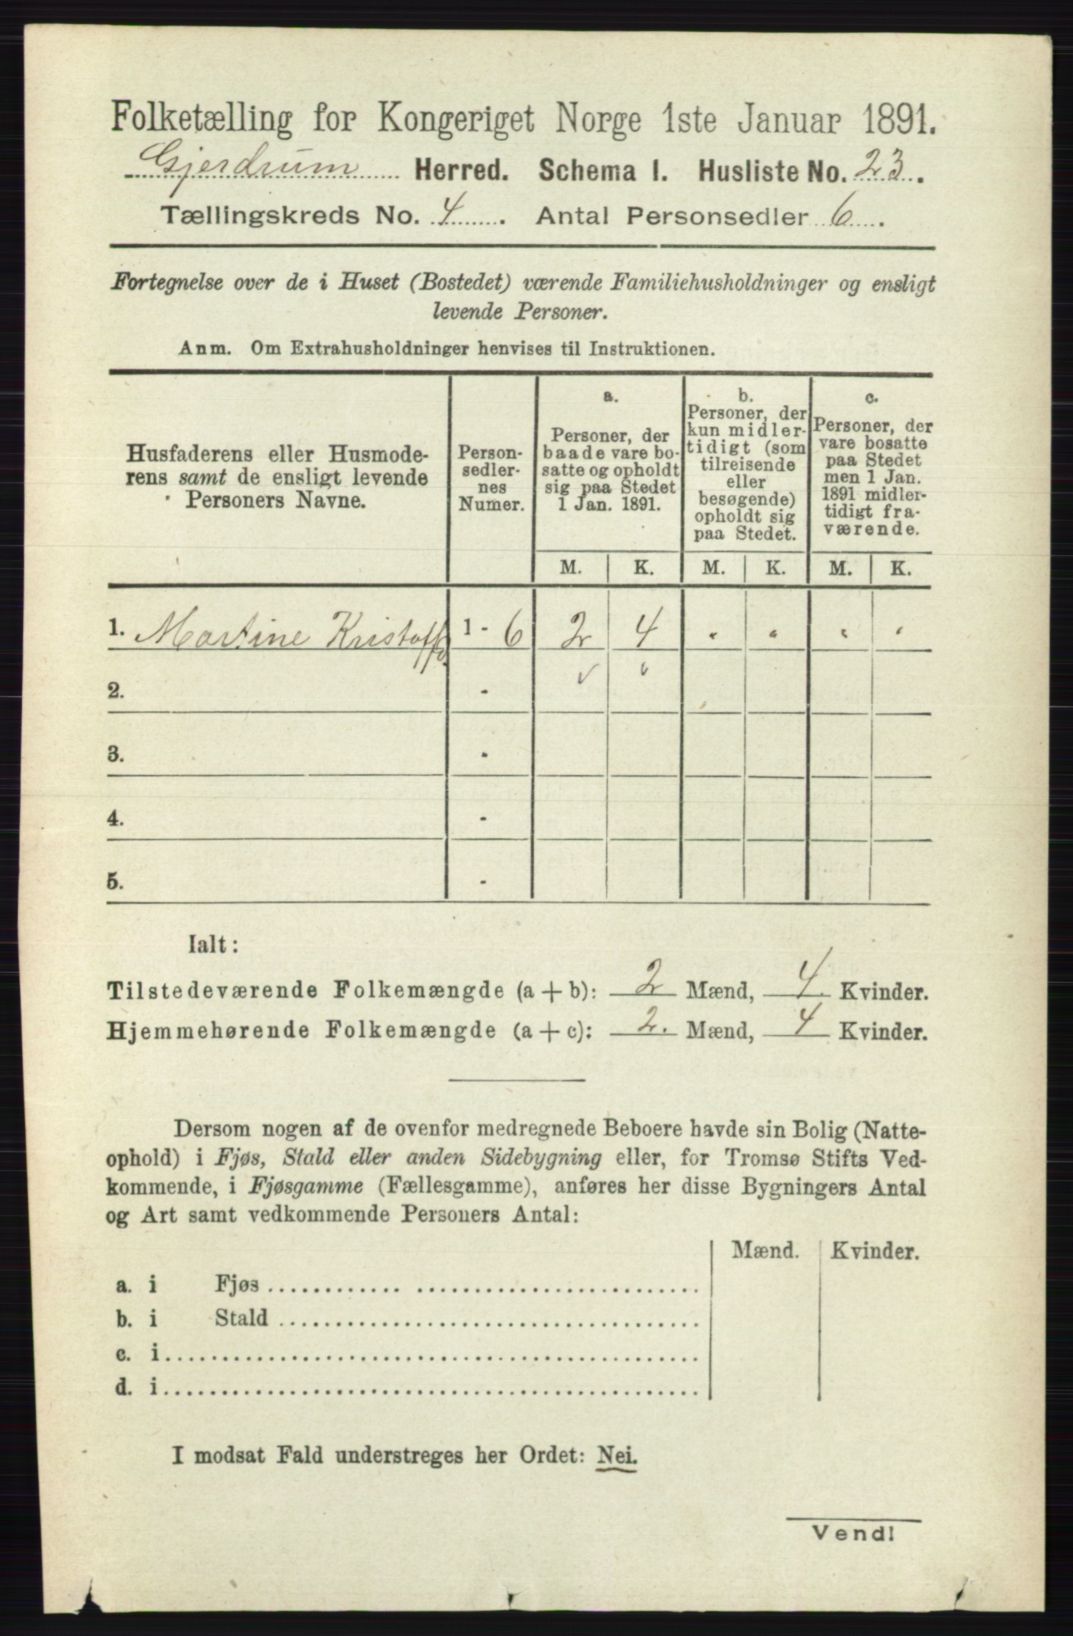 Folketælling for Kongeriget Norge 1ste Januar 1891.
Gjerdrum Herred. Schema I. Husliste No. 23.
Tællingskreds No. 4. Antal Personsedler 6.
Fortegnelse over de i Huset (Bostedet) værende Familiehusholdninger og ensligt
levende Personer.
Anm. Om Extrahusholdninger henvises til Instruktionen.
Husfaderens eller Husmode-
rens samt de ensligt levende
Personers Navne.
Person-
sedler-
nes
Numer.
a.
Personer, der
baade vare bo-
satte og opholdt
sig paa Stedet
1 Jan. 1891.
b.
Personer, der
kun midler-
tidigt (som
tilreisende
eller
besøgende)
opholdt sig
paa Stedet.
c.
Personer, der
vare bosatte
paa Stedet
men 1 Jan.
1891 midler-
tidigt fra-
værende.
M. K. M. K. M. K.
1. Martine 1 - 6 2 4 " " " "
2. -
3. -
4. -
5. -
Ialt:
Tilstedeværende Folkemængde (a + b): 2 Mænd, 4 Kvinder.
Hjemmehørende Folkemængde (a + c): 2. Mænd, 4 Kvinder.
Dersom nogen af de ovenfor medregnede Beboere havde sin Bolig (Natte-
ophold) i Fjøs, Stald eller anden Sidebygning eller, for Tromsø Stifts Ved-
kommende, i Fjøsgamme (Fællesgamme), anføres her disse Bygningers Antal
og Art samt vedkommende Personers Antal:
Mænd. Kvinder.
a. i Fjøs
b. i Stald
c. i
d. i
I modsat Fald understreges her Ordet: Nei.
Vend!